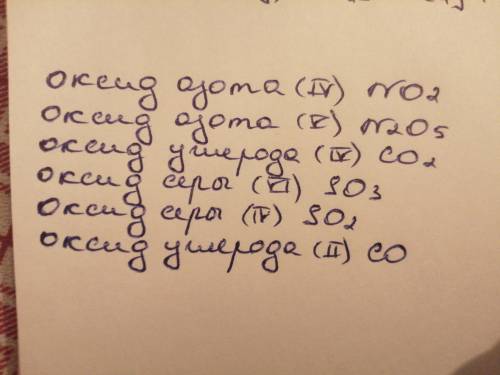 оксид азота (IV) NO2
оксид азота (V) N2O5
оксид углерода (IV) CO2
оксид серы (VI) SO3
оксид серы (IV) SO2
оксид углерода (II) CO